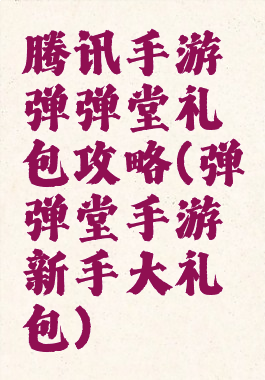 腾讯手游
弹弹堂礼
包攻略(弹
弹堂手游
新手大礼
包)